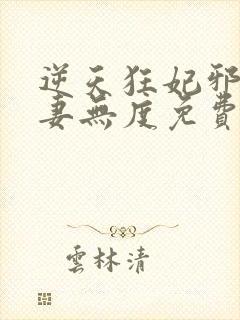 逆天狂妃邪
妻無度免費
雲林清